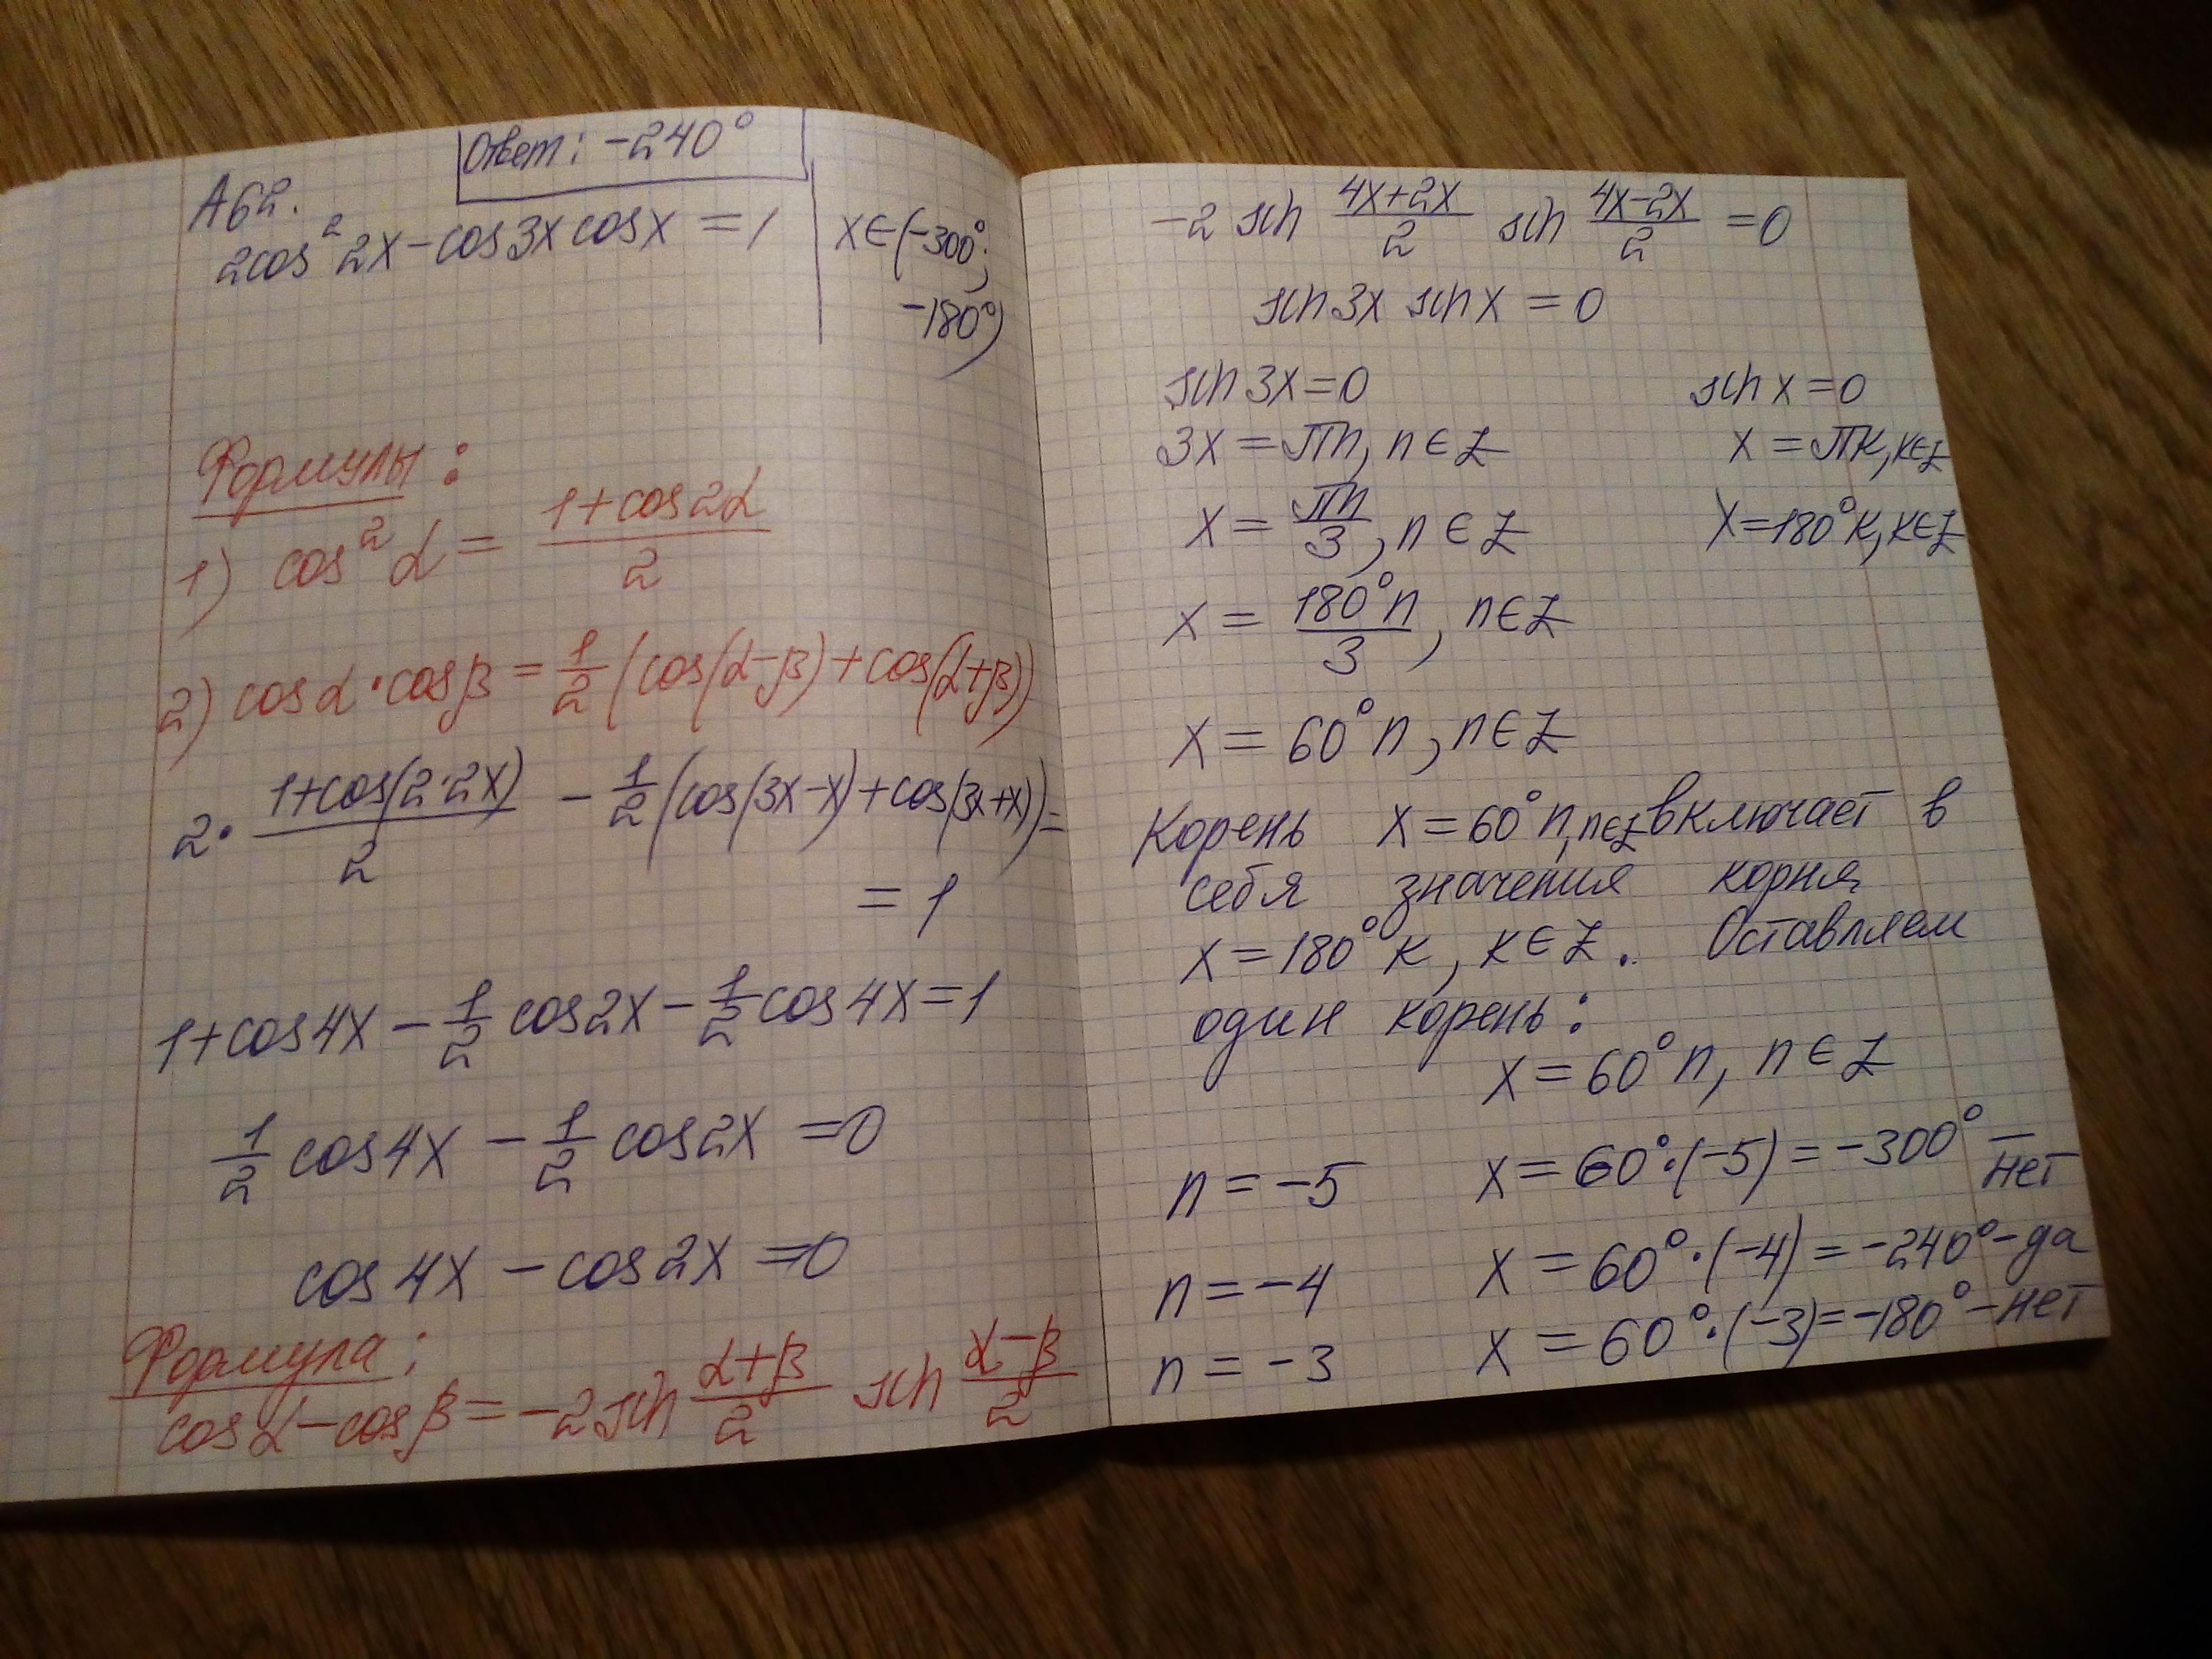 Ответ: -240°
А62.
2cos²2x - cos3x cosx = 1 | x∈(-300°;
-180°)
Формулы:
1) cos²α = (1+cos2α)/2
2) cosα·cosβ = 1/2 (cos(α-β)+cos(α+β))
2· (1+cos(2·2x))/2 - 1/2 (cos(3x-x)+cos(3x+x)) =
= 1
1+cos4x - 1/2 cos2x - 1/2 cos4x = 1
1/2 cos4x - 1/2 cos2x = 0
cos4x - cos2x = 0
Формула:
cosα - cosβ = -2 sin (α+β)/2 sin (α-β)/2
-2 sin (4x+2x)/2 sin (4x-2x)/2 = 0
sin3x sinx = 0
sin3x = 0 sinx = 0
3x = πn, n∈Z x = πк, к∈Z
x = πn/3, n∈Z x = 180°к, к∈Z
x = 180°n/3, n∈Z
x = 60°n, n∈Z
Корень x = 60°n, n∈Z включает в
себя значения корня
x = 180°к, к∈Z. Оставляем
один корень:
x = 60°n, n∈Z
n = -5 x = 60°·(-5) = -300° –
нет
n = -4 x = 60°·(-4) = -240° - да
n = -3 x = 60°·(-3) = -180° - нет